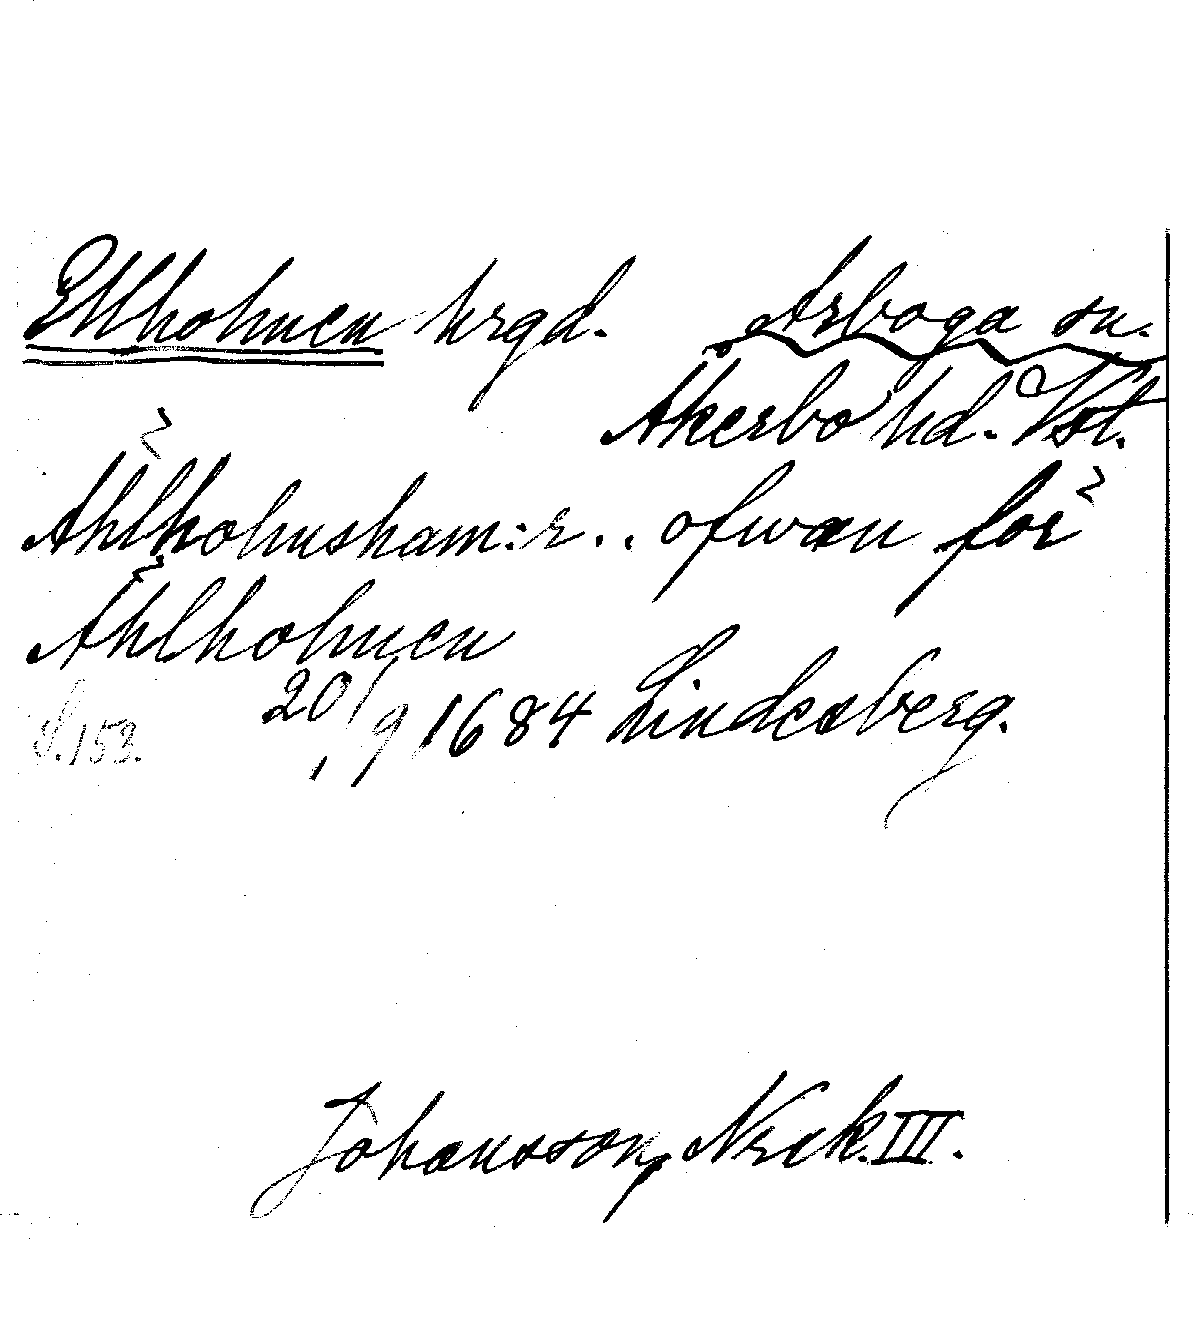 Ellholmen hrgd. Arboga sn.
Åkerbo hd. Vstl.
Ahlholmsham:r . . ofwan for
Ahlholmen
S. 153. 20/9 1684 Lindesberg.
Johansson, Nrck. III.